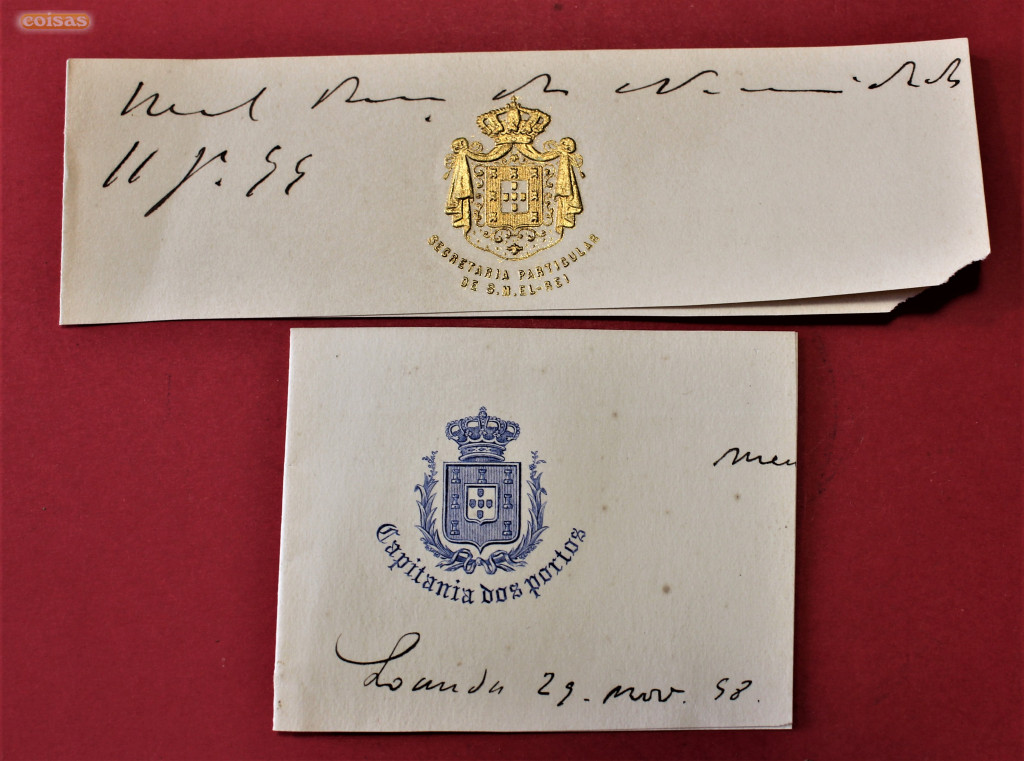 coisas
11 Jº. 99
SECRETARIA PARTICULAR
DE S.M. EL-REI
meu
Capitania dos portos
Loanda 29. nov. 98.